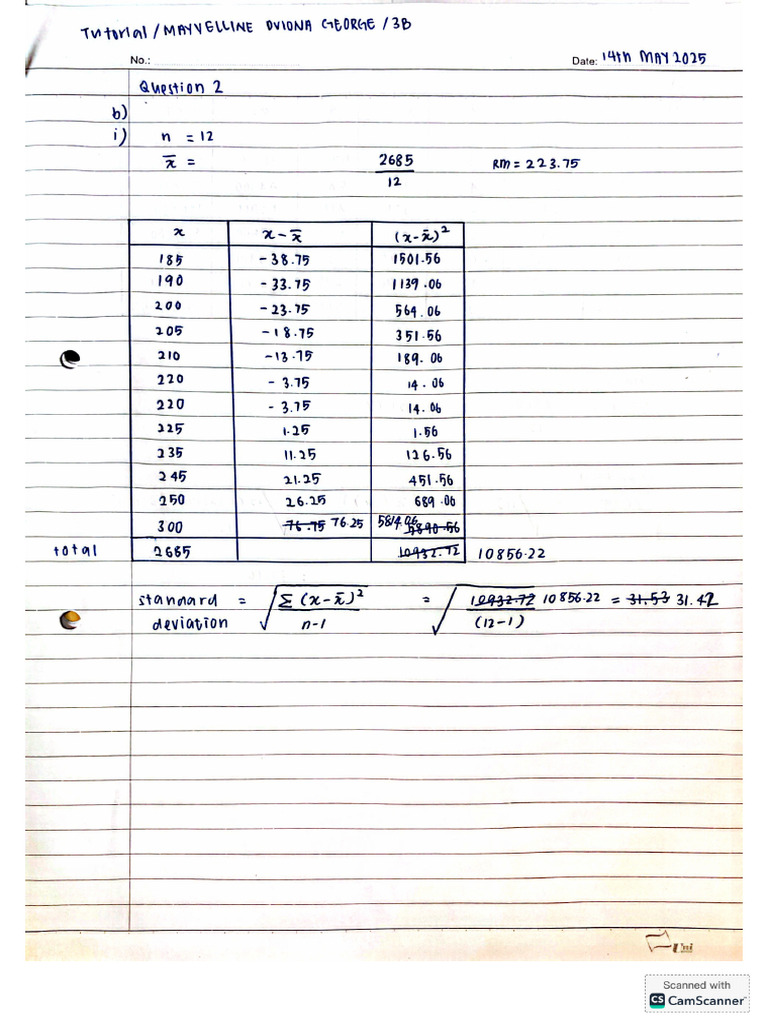 Tutorial / MAYVELLINE OVIONA GEORGE / 3B
No.: Date: 14th MAY 2025
Question 2
b)
i) n = 12
x̄ = 2685/12 RM = 223.75
x x-x̄ (x-x̄)²
185 -38.75 1501.56
190 -33.75 1139.06
200 -23.75 564.06
205 -18.75 351.56
210 -13.75 189.06
220 -3.75 14.06
220 -3.75 14.06
225 1.25 1.56
235 11.25 126.56
245 21.25 451.56
250 26.25 689.06
300 76.75 76.25 5814.06 5890.56
total 2685 10932.72 10856.22
standard deviation = √(Σ(x-x̄)²/n-1) = √(10932.72 10856.22/(12-1)) = 31.53 31.42
Uni
Scanned with
CS CamScanner